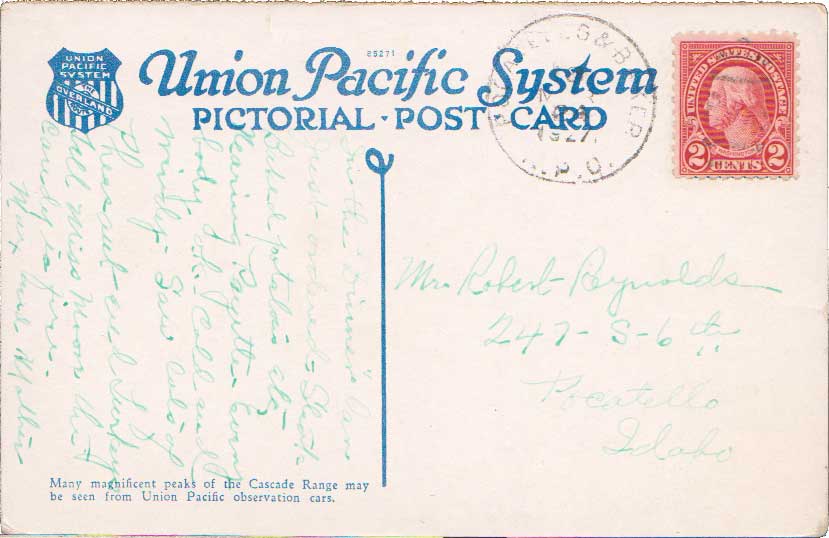 UNION
PACIFIC
SYSTEM
OVERLAND
85271
Union Pacific System
PICTORIAL · POST CARD
& BAKER
1927
R.P.O.
UNITED STATES POSTAGE
2 CENTS 2
In the "Dinner" Car
Just ordered
Baked potatoes etc
Nearing Payette
body ok. Cold and
windy. Saw lots of
Pheasants and Turkeys
Tell Miss Moon the
candy is fine.
Much love Mother
Mr. Robert Reynolds
247 - S - 6th
Pocatello
Idaho
Many magnificent peaks of the Cascade Range may
be seen from Union Pacific observation cars.